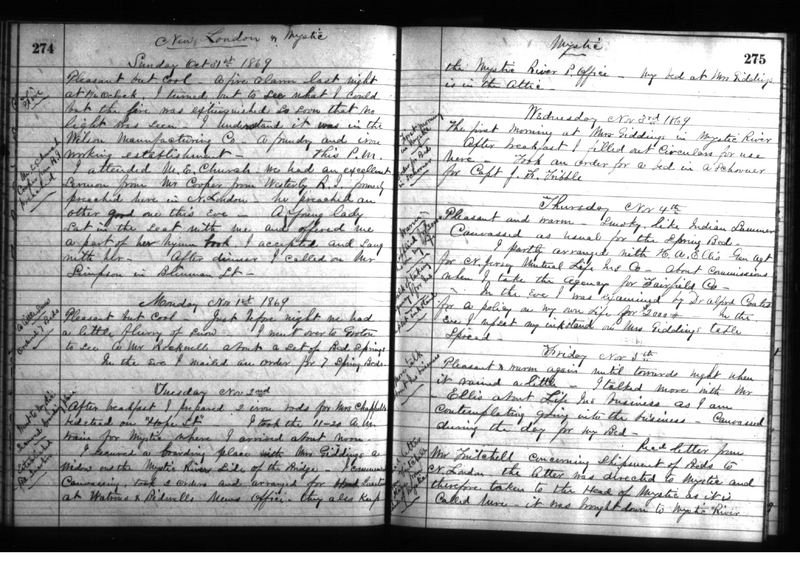 274
New London & Mystic
Sunday Oct 31st 1869
Pleasant but Cool - A fire alarm last night
at I turned out to see what I could
but the fire was extinguished so soon that no
light was seen. I understand it was in the
Wilson Manufacturing Co - A foundry and iron
working establishment - This P.M.
I attended M. E. Church we had an excellent
Sermon from Mr Coper from Westerly R. I. formerly
preached here in N. London - he preached an
other good one this Eve - A young lady
sat in the seat with me and offered me
a part of her Hymn book I accepted and Sang
with her. - After dinner I called on Mr
Simpson in Blinman St -
Monday Nov 1st 1869
Pleasant but Cool - Just before night we had
a little flurry of Snow - I went over to Groton
to see a Mr Rockwell about a Set of Bed Springs
In the Eve I mailed an order for 7 Spring Beds
Tuesday Nov 2nd
After breakfast I prepared 2 iron rods for Mrs Chappell's
bedstead on "Hope St" I took the 11-20 A.M.
train for Mystic where I arrived about noon.
I secured a boarding place with Mrs Giddings a
Widow on the Mystic River Side of the Bridge - I Commenced
Canvassing, took 2 orders and arranged for Head Quarters
at News Office. they also keep
Mystic
275
the Mystic River P. Office - My bed at Mrs Giddings
is in the Attic -
Wednesday Nov 3rd 1869
The first morning at Mrs Giddings in Mystic River
After breakfast I filled out Circulars for use
here - Took an order for a bed in a Schooner
for Capt J. H.
Thursday Nov 4th
Pleasant and warm - Smoky, like Indian Summer
Canvassed as usual for the Spring Bed -
I partly arranged with H. A. Ellis Gen Agt
for N. Jersey Mutual Life Ins Co - about Commissions
when I take the agency for Fairfield Co -
In the Eve I was examined by Dr Alfred Coates
for a policy on my own life for 2000 $ - In the
Eve I upset my inkstand on Mrs Giddings table
Spread -
Friday Nov 5th
Pleasant & warm again until towards night when
it rained a little - I talked more with Mr
Ellis about Life Ins business as I am
Contemplating going into the business - Canvassed
during the day for my Bed -
Recd letter from
Mr Twitchell Concerning Shipment of Beds to
N. London the letter was directed to Mystic and
therefore taken to the Head of Mystic as it is
Called here - it was brought down to Mystic River